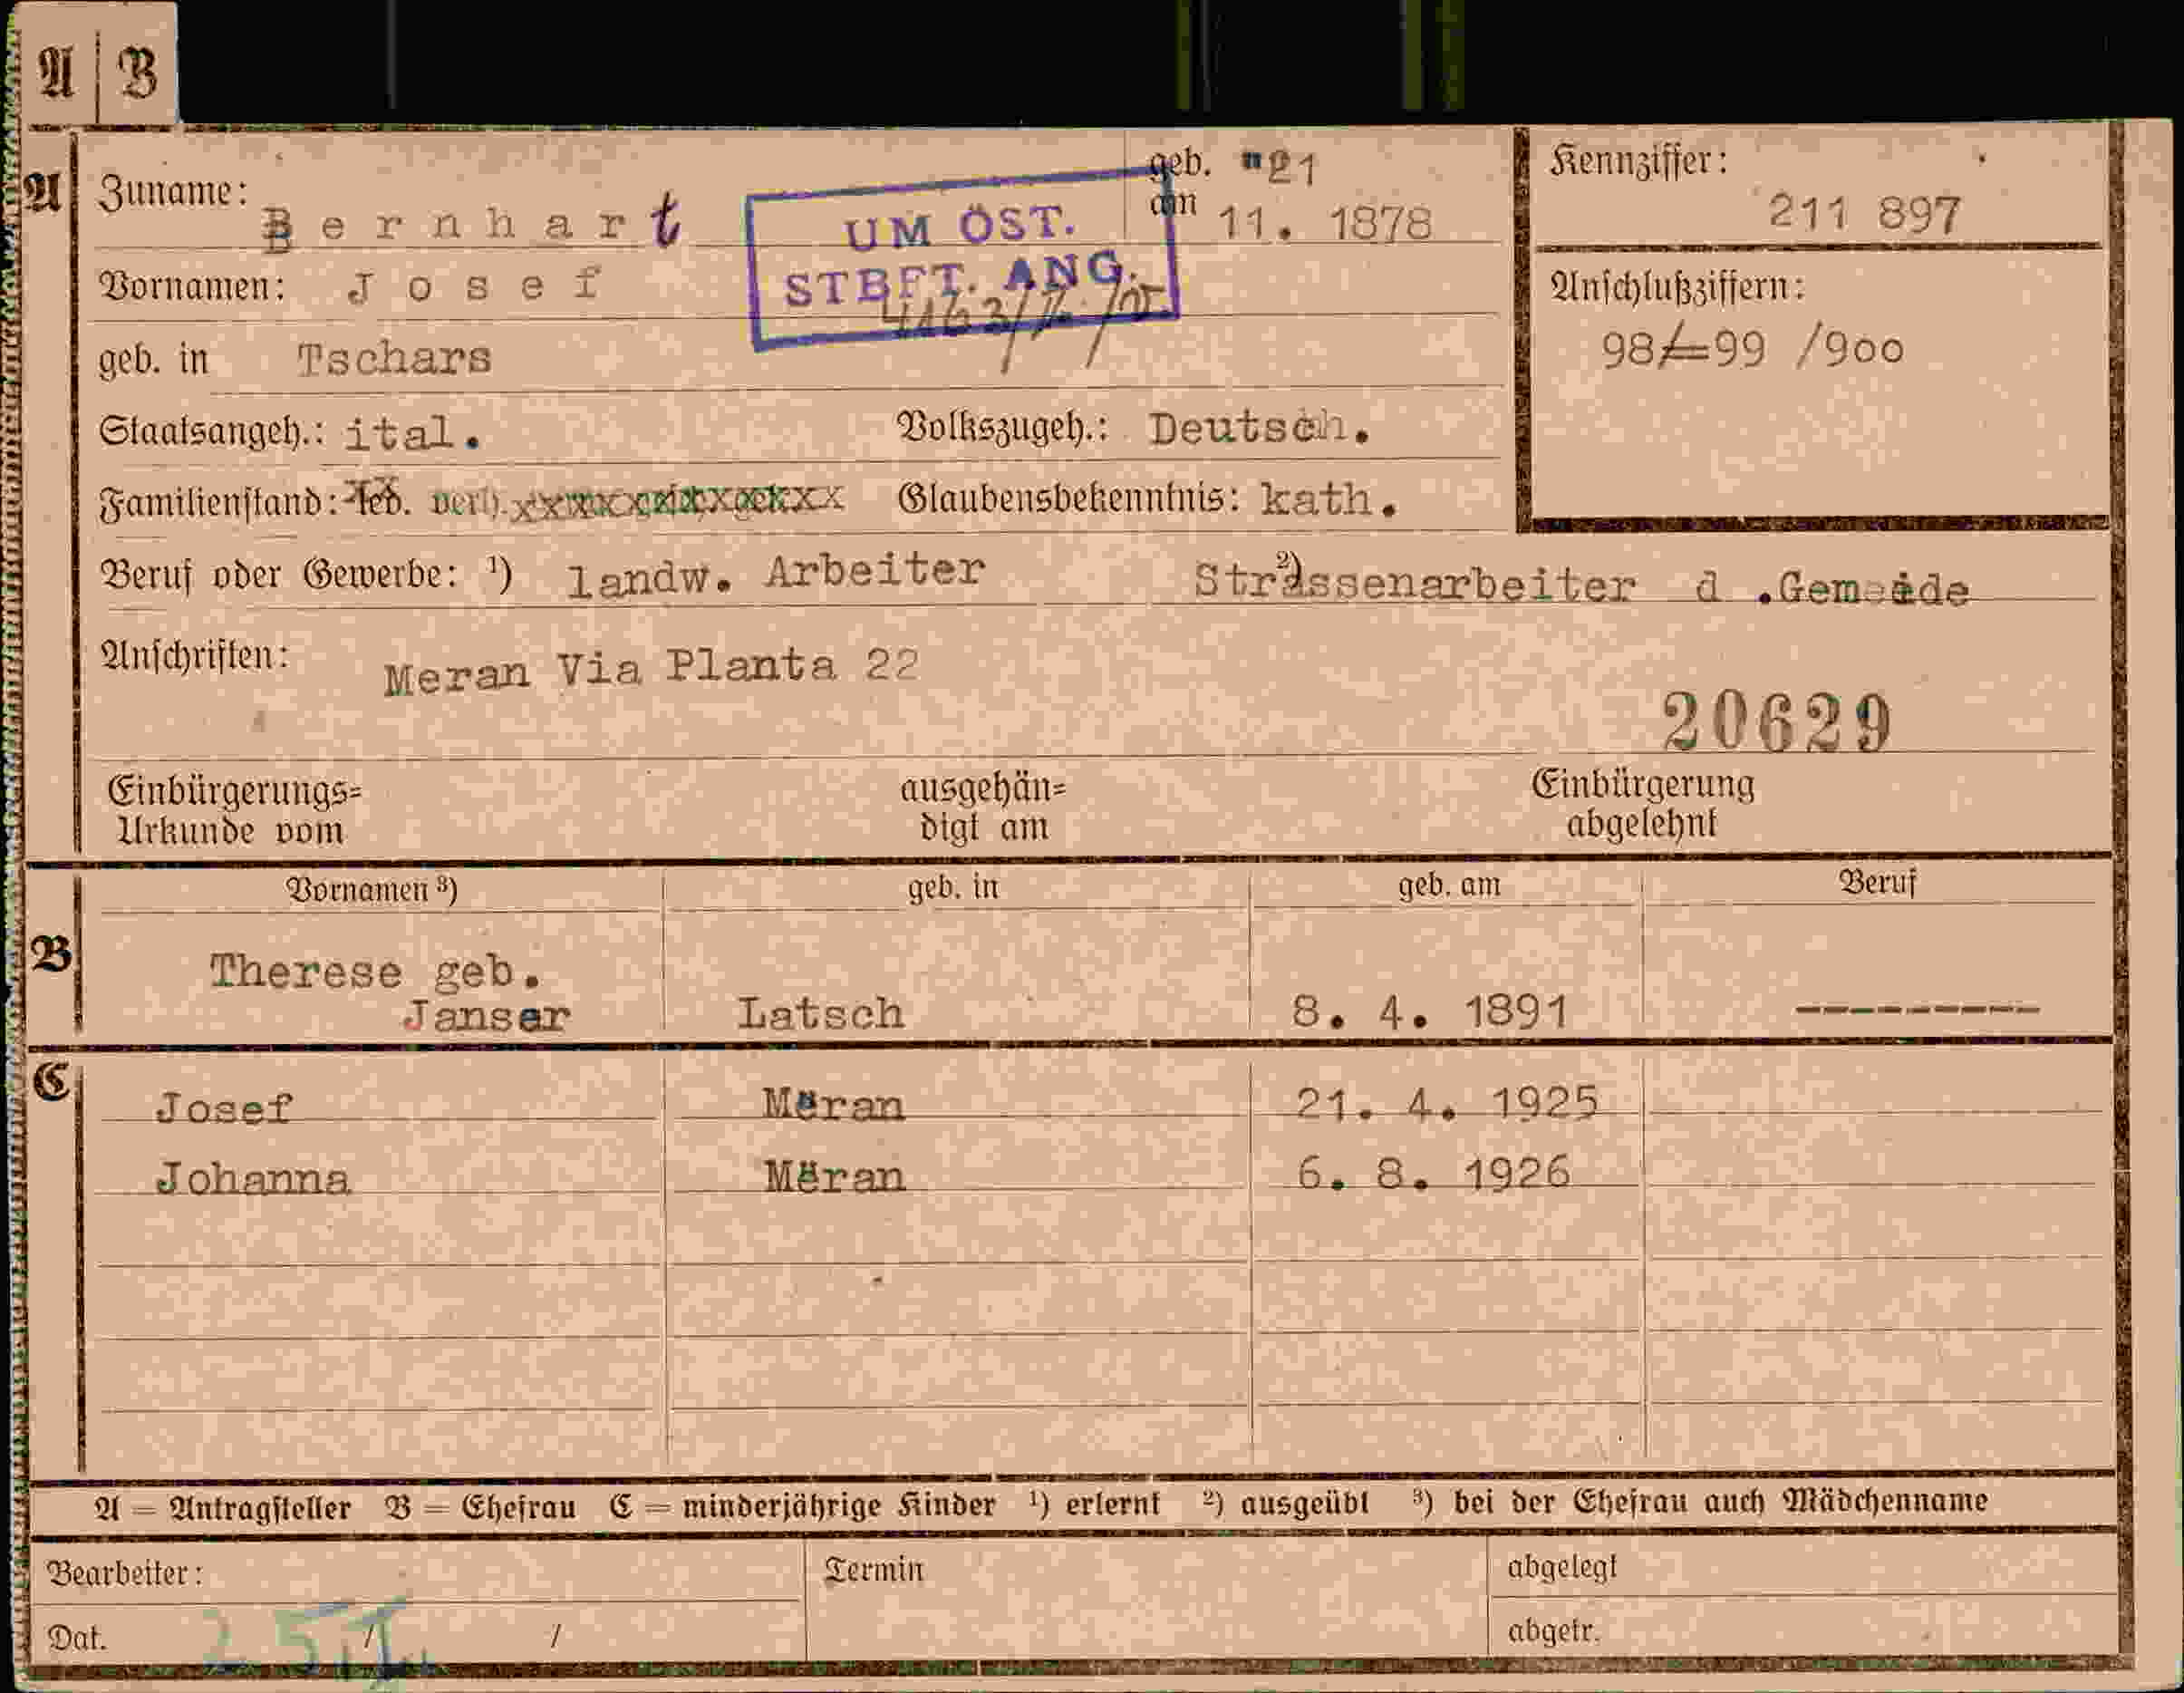 A | B
A
Zuname: Bernhart
geb. am 21 11. 1878
Kennziffer: 211 897
UM ÖST. STBFT. ANG.
Vornamen: Josef
Anschlußziffern:
98/=99 /900
geb. in Tschars
Staatsangeh.: ital. Volkszugeh.: Deutsch.
Familienstand: led. verh. Glaubensbekenntnis: kath.
Beruf oder Gewerbe: ¹) landw. Arbeiter ²) Strassenarbeiter d .Gemeide
Anschriften: Meran Via Planta 22
20629
Einbürgerungs= Urkunde vom
ausgehän= digt am
Einbürgerung abgelehnt
Vornamen ³) geb. in geb. am Beruf
B
Therese geb.
Janser Latsch 8. 4. 1891 ---------
C
Josef Meran 21. 4. 1925
Johanna Meran 6. 8. 1926
A = Antragsteller B = Ehefrau C = minderjährige Kinder ¹) erlernt ²) ausgeübt ³) bei der Ehefrau auch Mädchenname
Bearbeiter: Termin abgelegt
Dat. / / abgetr.